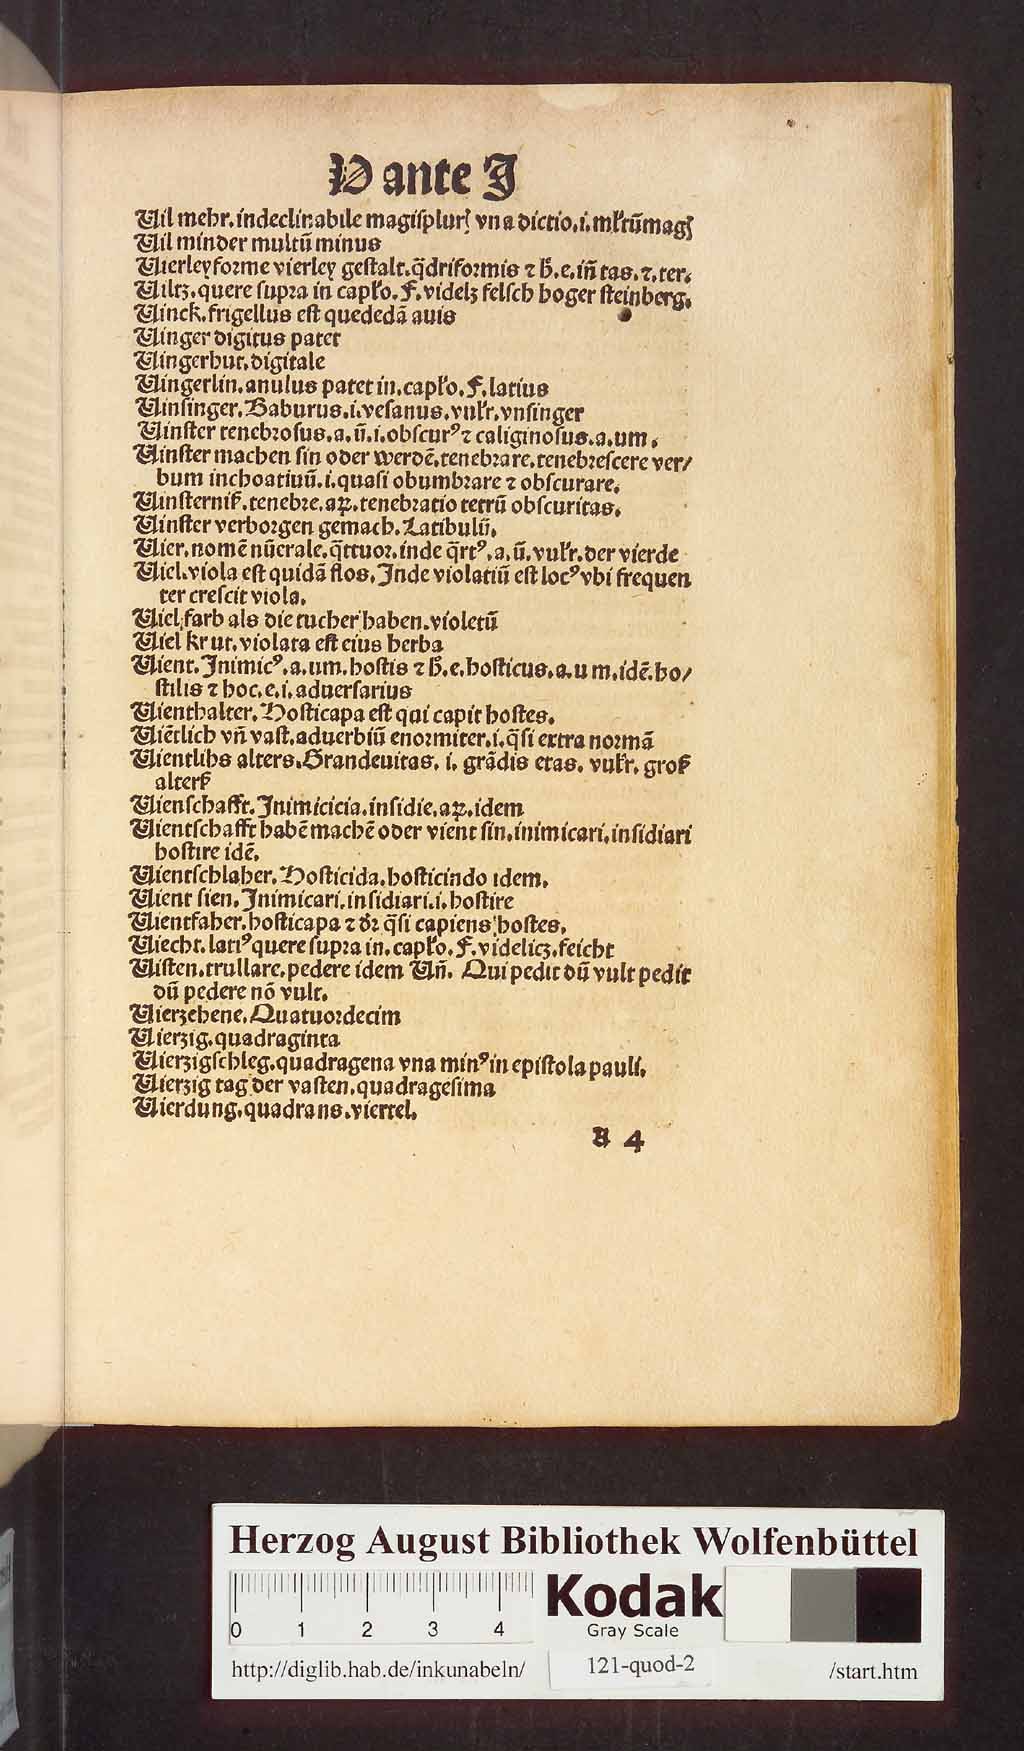 V ante J
Uil mehr. indeclinabile magisplurꝭ vna dictio. i. ml̃tũmagꝭ
Uil minder multũ minus
Uierleyforme vierley gestalt. q̃driformis ⁊ h̃. e. iñ tas. ⁊. ter.
Uiltz. quere supra in capl̃o. F. videlz felsch boger steinberg.
Uinck. frigellus est quededã auis
Uinger digitus patet
Uingerhut. digitale
Uingerlin. anulus patet in. capl̃o. F. latius
Uinsinger. Baburus. i. vesanus. vul̃r. vnsinger
Uinster tenebrosus. a. ũ. i. obscurꝰ ⁊ caliginosus. a. um.
Uinster machen sin oder werdẽ. tenebrare. tenebrescere ver/
bum inchoatiuũ. i. quasi obumbrare ⁊ obscurare.
Uinsterniß. tenebre. aꝝ. tenebratio tetrũ obscuritas.
Uinster verborgen gemach. Latibulũ.
Uier. nomẽ nũerale. q̃ttuor. inde q̃rtꝰ. a. ũ. vul̃r. der vierde
Uiel. viola est quidã flos. Inde violatiũ est locꝰ vbi frequen
ter crescit viola.
Uiel farb als die tucher haben. violetũ
Uiel krut. violata est eius herba
Uient. Inimicꝰ. a. um. hostis ⁊ h̃. e. hosticus. a. u m. idẽ. ho/
stilis ⁊ hoc. e. i. aduersarius
Uienthalter. Hosticapa est qui capit hostes.
Uiẽtlich vñ vast. aduerbiũ enormiter. i. q̃si extra normã
Uientlihs alters. Grandeuitas. i. grãdis etas. vul̃r. groß
alterß
Uienschafft. Inimicicia. insidie. aꝝ. idem
Uientschafft habẽ machẽ oder vient sin. inimicari. insidiari
hostire idẽ.
Uientschlaher. Hosticida. hosticindo idem.
Uient sien. Inimicari. insidiari. i. hostire
Uientfaher. hosticapa ⁊ dr̃ q̃si capiens hostes.
Uiecht. latiꝰ quere supra in. capl̃o. F. videlicz. feicht
Uisten. trullare. pedere idem Uñ. Qui pedit dũ vult pedit
dũ pedere nõ vult.
Uierzehene. Quatuordecim
Uierzig. quadraginta
Uierzigschleg. quadragena vna minꝰ in epistola pauli.
Uierzig tag der vasten. quadragesima
Uierdung. quadrans. viertel.
4
Herzog August Bibliothek Wolfenbüttel
0 1 2 3 4
Kodak
Gray Scale
http://diglib.hab.de/inkunabeln/ 121-quod-2 /start.htm